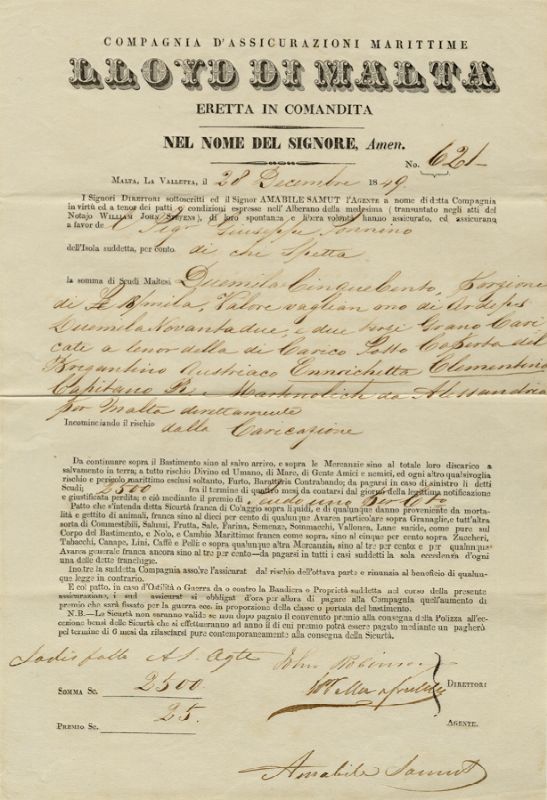 COMPAGNIA D'ASSICURAZIONI MARITTIME
LLOYD DI MALTA
ERETTA IN COMANDITA
NEL NOME DEL SIGNORE, Amen.
No. 621
MALTA, LA VALLETTA, il 28 Decembre 1849
I Signori DIRETTORI sottoscritti ed il Signor AMABILE SAMUT l'AGENTE a nome di detta Compagnia
in virtù ed a tenor dei patti e condizioni espresse nell'Alberano della medesima (transuntato negli atti del
Notajo WILLIAM JOHN STEVENS), di loro spontanea e libera volontà hanno assicurato, ed assicurano
a favor de l Sigr Giuseppe
dell'Isola suddetta, per conto di chi Spetta
la somma di Scudi Maltesi Duemila Cinquecento, Porzione
di mila, Valore di
Duemila Novanta due, e due Grano Cari
cate a tenor della di Carico Sotto Coperta del
Brigantino Austriaco Enrichetta Clementina
Capitano Martinolich da Alessandria
per Malta direttamente
Incominciando il rischio dalla Caricazione
Da continuare sopra il Bastimento sino al salvo arrivo, e sopra le Mercanzie sino al totale loro discarico a
salvamento in terra; a tutto rischio Divino ed Umano, di Mare, di Gente Amici e nemici, ed ogni altro qualsivoglia
rischio e pericolo marittimo esclusi soltanto, Furto, Baratteria Contrabando; da pagarsi in caso di sinistro li detti
Scudi 2500 fra il termine di quattro mesi da contarsi dal giorno della legittima notificazione
e giustificata perdita; e ciò mediante il premio di Scudo uno
Patto che s'intenda detta Sicurtà franca di Co'aggio sopra liquidi, e di qualunque danno proveniente da morta-
lità e gettito di animali, franca sino al dieci per cento di qualunque Avarea particolare sopra Granaglie, e tutt'altra
sorta di Commestibili, Salumi, Frutta, Sale, Farina, Semenze, Sommacchi, Vallonea, Lane sucide, come pure sul
Corpo del Bastimento, e No'o, e Cambio Marittimo; franca come sopra, sino al cinque per cento sopra Zuccheri,
Tabacchi, Canape, Lini, Caffè e Pelli; e sopra qualunque altra Mercanzia, sino al tre per cento e per qualunque
Avarea generale franca ancora sino al tre per cento—da pagarsi in tutti i casi suddetti la sola eccedenza d'ogni
una delle dette franchigie.
Inoltre la suddetta Compagnia assolve l'assicurat dal rischio dell'ottava parte e rinunzia al beneficio di qualun-
que legge in contrario.
E col patto, in caso d'Ostilità o Guerra da o contro la Bandiera o Proprietà suddetta nel corso della presente
assicurazione, i sud assicurat si obbligat d'ora per allora di pagare alla Compagnia quell'aumento di
premio che sarà fissato per la guerra ecc. in proporzione della classe o portata del bastimento.
N.B.—Le Sicurtà non saranno valide se non dopo pagato il convenuto premio alla consegna della Polizza all'ec-
cezione bensì delle Sicurtà che si effettueranno ad anno il di cui premio potrà essere pagato mediante un pagherò
pel termine di 6 mesi da rilasciarsi pure contemporaneamente alla consegna della Sicurtà.
Sodisfatto A S. Agte
John
SOMMA Sc. 2500
DIRETTORI
PREMIO Sc. 25.
AGENTE.
Amabile Samut